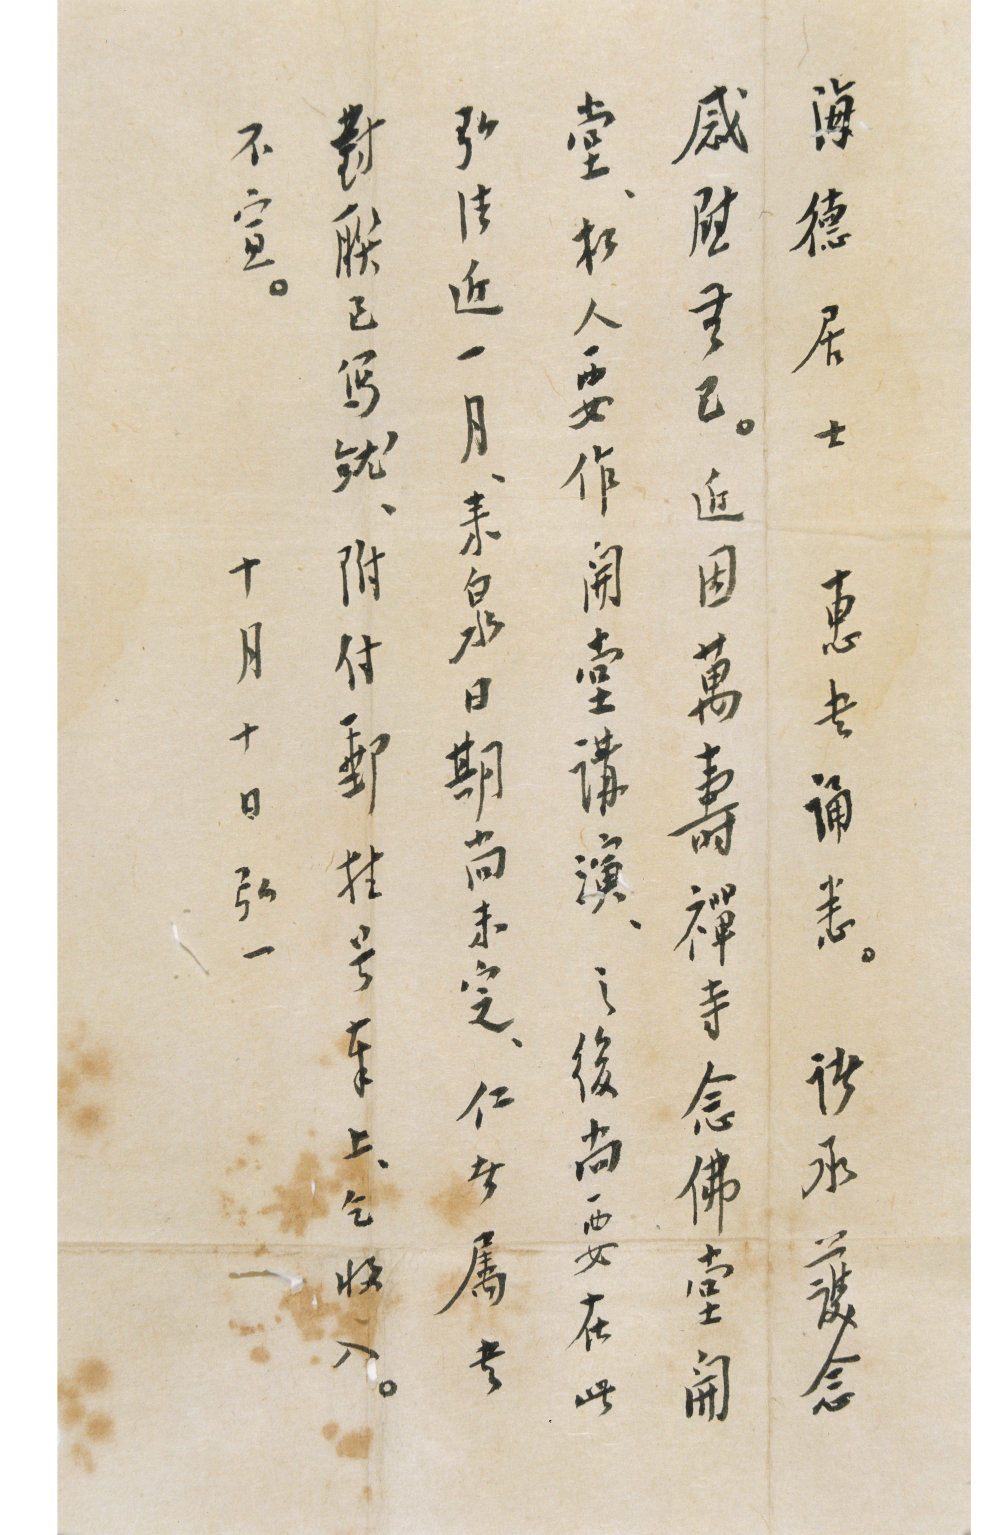 海德居士 惠书诵悉。 诸承護念
感慰無已。近因萬壽禪寺念佛堂開
堂、招人要作開堂講演、之後尚要在此
弘法近一月、来泉日期尚未定、仁者属书
對联已写就、附付郵挂号奉上、乞收入。
不宣。
十月十日 弘一